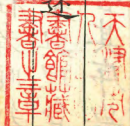 天津市
人
書館藏
書之章